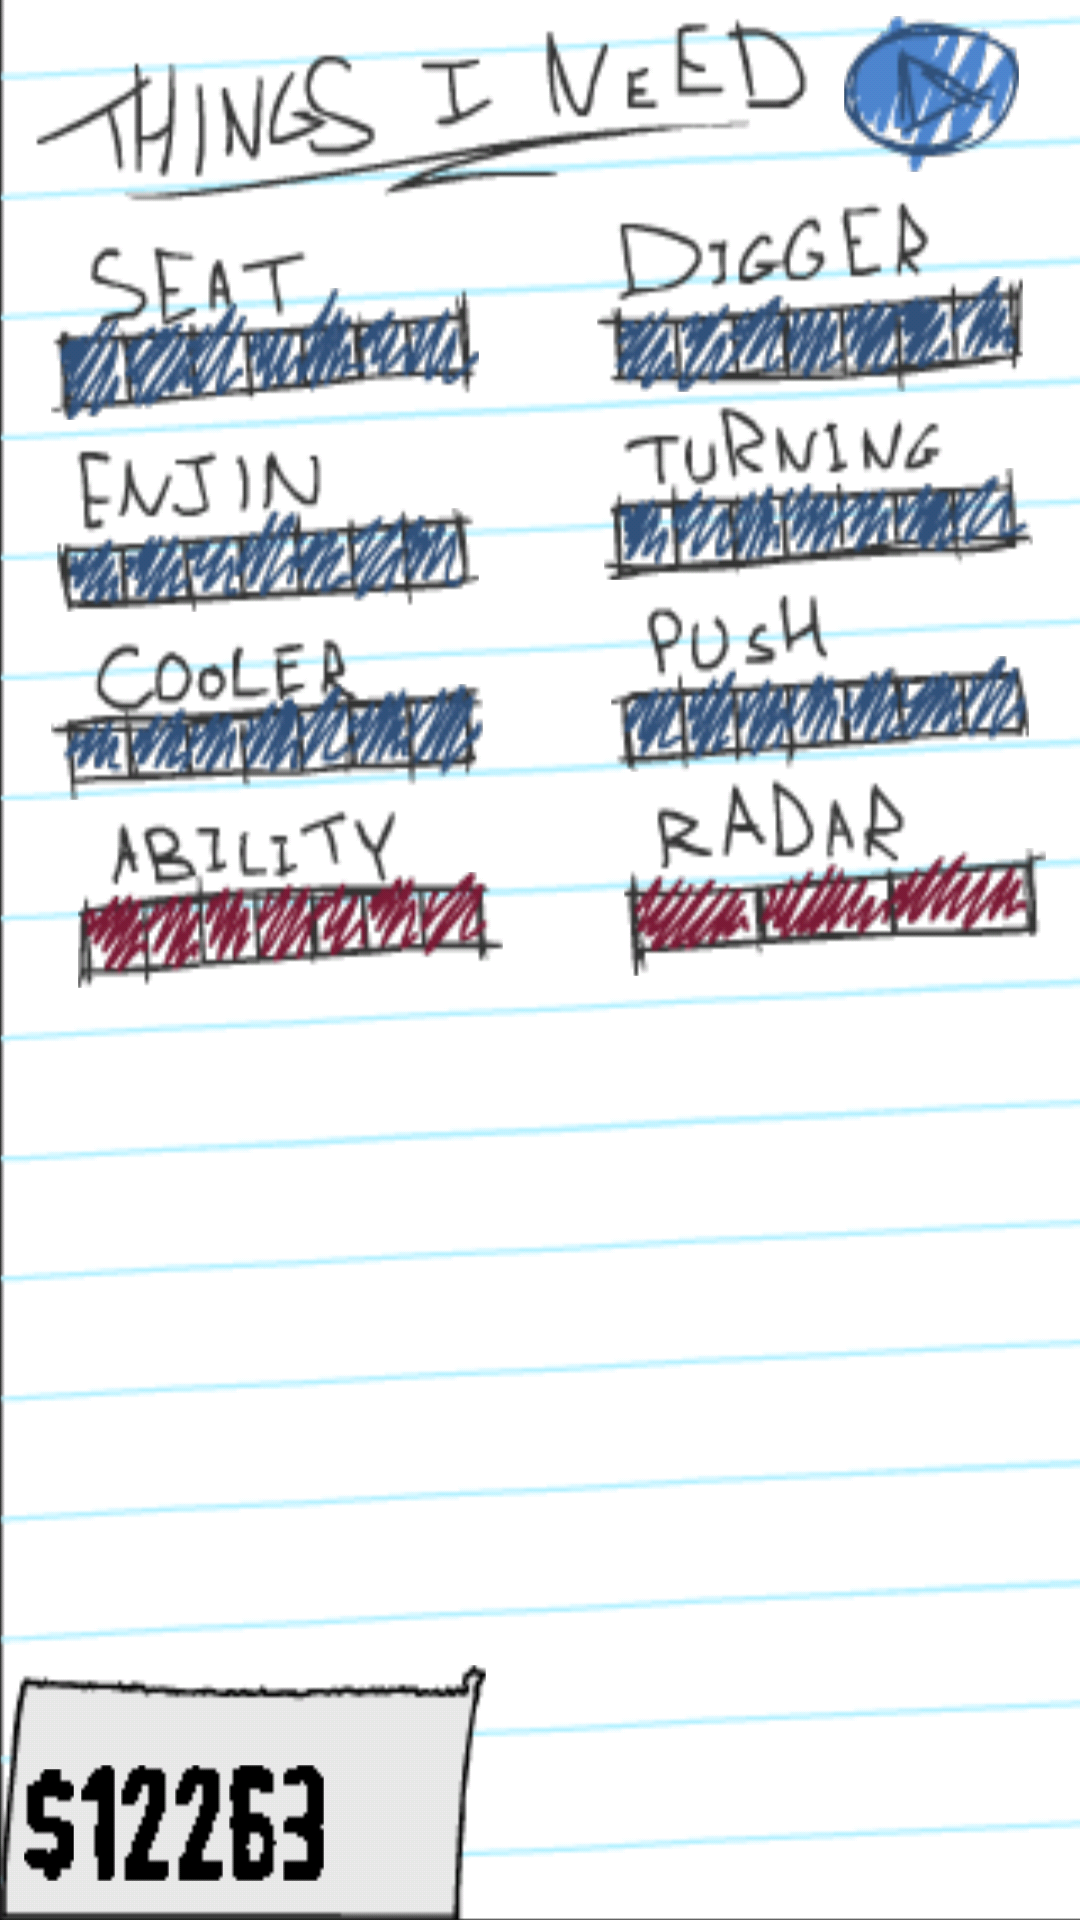 THINGS I NEED
SEAT
DIGGER
ENJIN
TURNING
COOLER
PUSH
ABILITY
RADAR
$12263